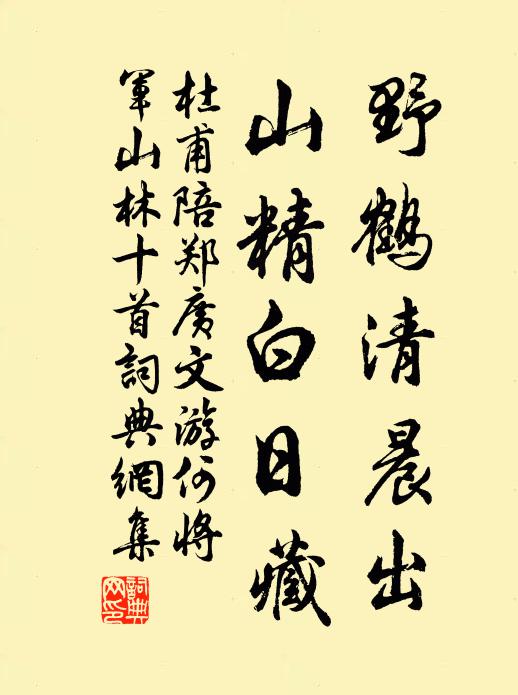 野鹤清晨出
山精白日藏
杜甫陪郑廣文游何將
軍山林十首詞典網集
詞典
网印